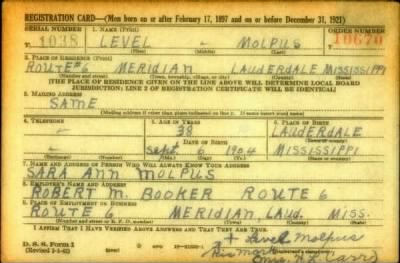 REGISTRATION CARD—(Men born on or after February 17, 1897 and on or before December 31, 1921)
SERIAL NUMBER 1. NAME (Print) ORDER NUMBER
T 1038 LEVEL - MOLPUS T 10670
(First) (Middle) (Last)
2. PLACE OF RESIDENCE (Print)
ROUTE #6 MERIDIAN LAUDERDALE MISSISSIPPI
(Number and street) (Town, township, village, or city) (County) (State)
[THE PLACE OF RESIDENCE GIVEN ON THE LINE ABOVE WILL DETERMINE LOCAL BOARD
JURISDICTION; LINE 2 OF REGISTRATION CERTIFICATE WILL BE IDENTICAL]
3. MAILING ADDRESS
SAME
[Mailing address if other than place indicated on line 2. If same insert word same]
4. TELEPHONE 5. AGE IN YEARS 6. PLACE OF BIRTH
- 38 LAUDERDALE
DATE OF BIRTH (Town or county)
- Sept. 6 1904 MISSISSIPPI
(Exchange) (Number) (Mo.) (Day) (Yr.) (State or country)
7. NAME AND ADDRESS OF PERSON WHO WILL ALWAYS KNOW YOUR ADDRESS
SARA ANN MOLPUS
8. EMPLOYER'S NAME AND ADDRESS
ROBERT M. BOOKER ROUTE 6
9. PLACE OF EMPLOYMENT OR BUSINESS
ROUTE 6 MERIDIAN, LAUD. MISS.
(Number and street or R. F. D. number) (Town) (County) (State)
I AFFIRM THAT I HAVE VERIFIED ABOVE ANSWERS AND THAT THEY ARE TRUE.
D. S. S. Form 1 + Level Molpus
(Revised
his mark